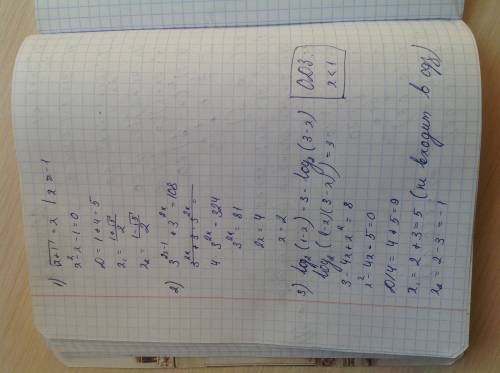 1) √x+1 = x | x ≥ -1
x² - x - 1 = 0
D = 1 + 4 = 5
x₁ = (1+√5)/2
x₂ = (1-√5)/2
2) 3^(2x-1) + 3^(2x) = 108
4 · 3^(2x) = 324
3^(2x) = 81
2x = 4
x = 2
3) log₂(1-x) = 3 - log₂(3-x)
log₂((1-x)(3-x)) = 3
3 - 4x + x² = 8
x² - 4x - 5 = 0
D/4 = 4 + 5 = 9
x₁ = 2 + 3 = 5 (не входит в одз)
x₂ = 2 - 3 = -1
ОДЗ:
x < 1